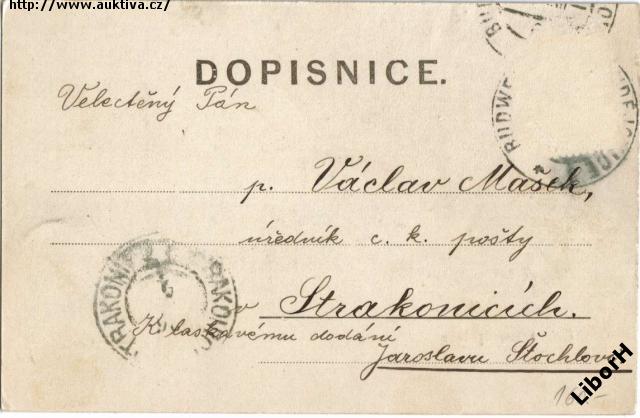 http://www.auktiva.cz/
DOPISNICE.
Velectěný Pán
p. Václav Mašek,
úředník c. k. pošty
v Strakonicích.
K laskavému dodání
Jaroslavu Štochlovi
LiborH